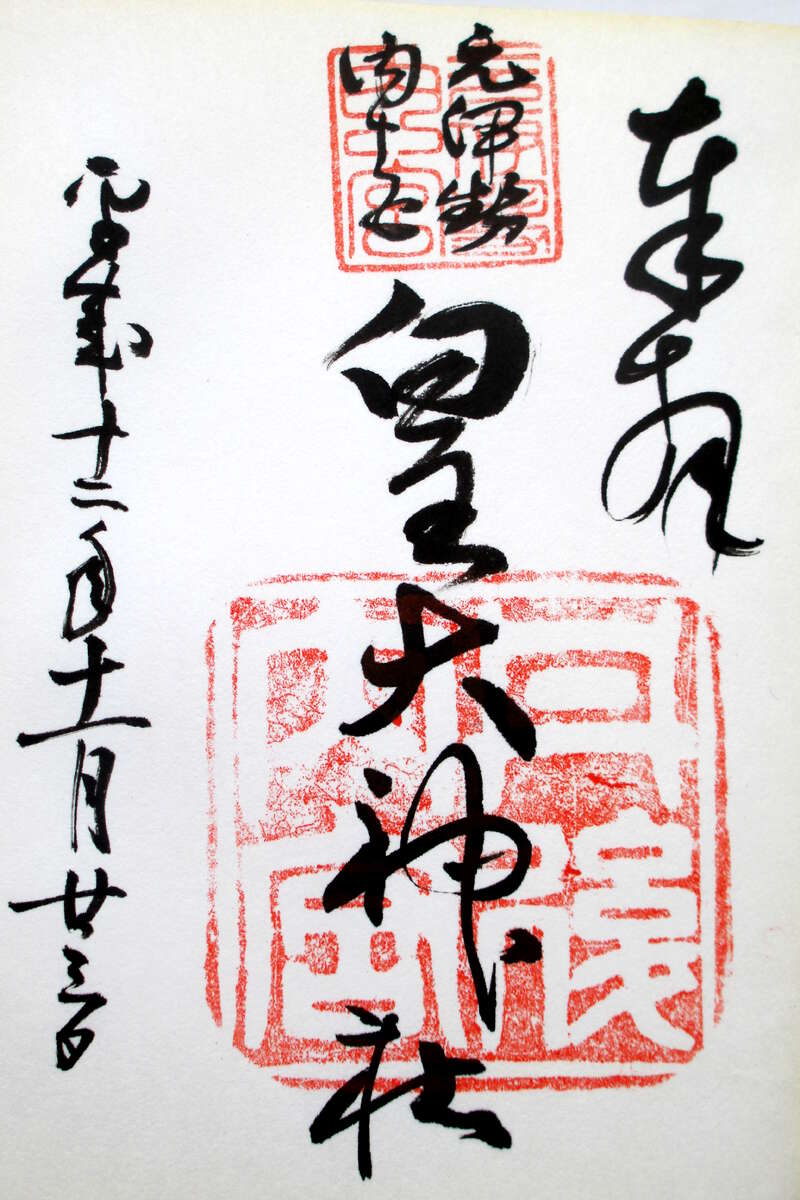 奉拝
元伊勢
内宮
皇大神社
平成十二年十一月廿三日